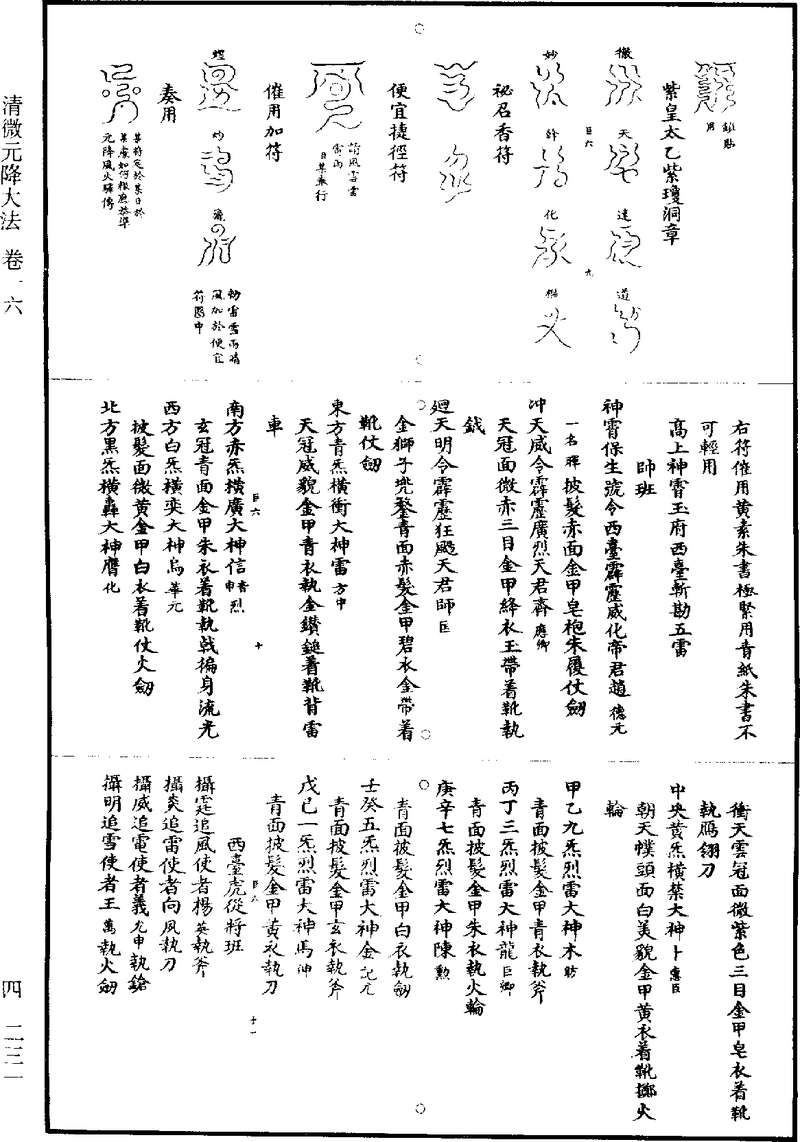 紫皇太乙紫瓊洞章
徹 天 達 道
妙 斡 化
祕召香符
便宜捷徑符
請風雲雷
雷雨
日某奉行
催用加符
煜 妙
勅雷雪雨晴
風加於便宜
符圈中
奏用
元降風火驛傳
右符催用黃素朱書極緊用青紙朱書不
可輕用
高上神霄玉府西臺斬勘五雷
帥班
神霄保生號令西臺霹靂威化帝君趙德元
一名暉披髮赤面金甲皂袍朱履仗劍
沖天威令霹靂廣烈天君齊應卿
天冠面微赤三目金甲絳衣玉帶着靴執
鉞
廻天明令霹靂狂飈天君師臣
金獅子兜鍪青面赤髮金甲碧衣金帶着
靴仗劍
東方青炁橫衝大神雷方中
天冠威貌金甲青衣執金鑽鎚着靴背雷
車
南方赤炁橫廣大神信青烈
玄冠青面金甲朱衣着靴執戟徧身流光
西方白炁橫奕大神烏華元
披髮面微黃金甲白衣着靴仗火劍
北方黑炁橫轟大神鷹化
衝天雲冠面微紫色三目金甲皂衣着靴
執鴈翎刀
中央黃炁橫禁大神卜惠臣
朝天幞頭面白美貌金甲黃衣着靴擲火
輪
甲乙九炁烈雷大神木昉
青面披髮金甲青衣執斧
丙丁三炁烈雷大神龍巨卿
青面披髮金甲朱衣執火輪
庚辛七炁烈雷大神陳勲
青面披髮金甲白衣執劍
壬癸五炁烈雷大神金記元
青面披髮金甲玄衣執斧
戊己一炁烈雷大神馬沖
青面披髮金甲黃衣執刀
西臺虎從將班
攝霆追風使者楊英執斧
攝炎追雷使者向夙執刀
攝威追電使者義允中執鎗
攝明追雪使者王萬執火劍
清微元降大法 卷一六
四 二三一